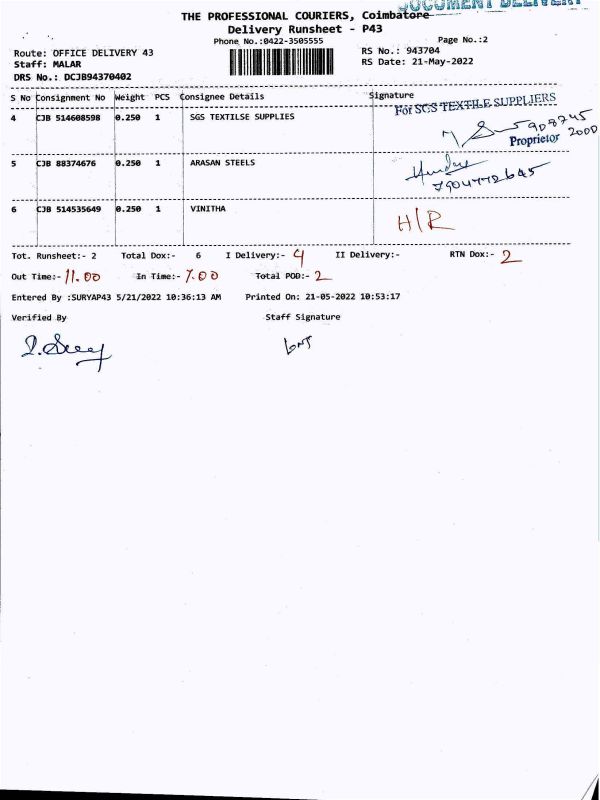 DOCUMENT DELIVERY
THE PROFESSIONAL COURIERS, Coimbatore
Delivery Runsheet - P43
Phone No.:0422-3505555
Page No.:2
Route: OFFICE DELIVERY 43
RS No.: 943704
Staff: MALAR
RS Date: 21-May-2022
DRS No.: DCJB94370402
S No Consignment No Weight PCS Consignee Details Signature
For SGS TEXTILE SUPPLIERS
4 CJB 514608598 0.250 1 SGS TEXTILSE SUPPLIES
908745
Proprietor 2000
5 CJB 88374676 0.250 1 ARASAN STEELS
7904772645
6 CJB 514535649 0.250 1 VINITHA H/R
Tot. Runsheet:- 2 Total Dox:- 6 I Delivery:- 4 II Delivery:- RTN Dox:- 2
Out Time:- 11.00 In Time:- 7.00 Total POD:- 2
Entered By :SURYAP43 5/21/2022 10:36:13 AM Printed On: 21-05-2022 10:53:17
Verified By Staff Signature